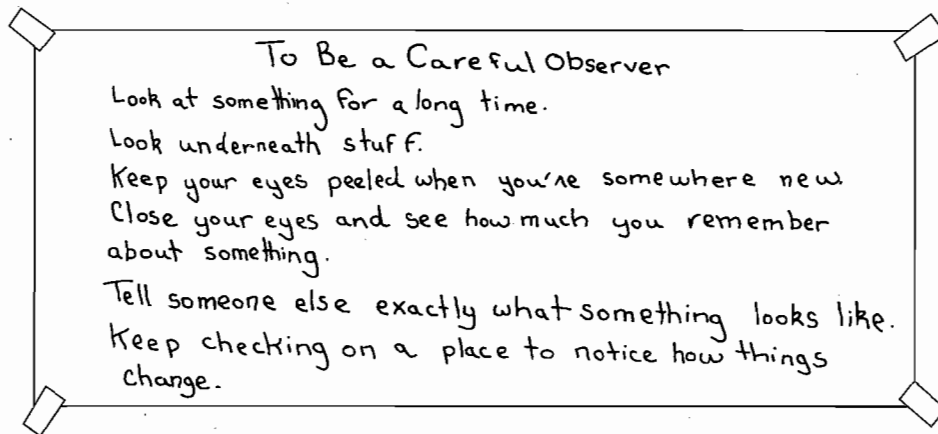 To Be a Careful Observer
Look at something for a long time.
Look underneath stuff.
Keep your eyes peeled when you're somewhere new.
Close your eyes and see how much you remember
about something.
Tell someone else exactly what something looks like.
Keep checking on a place to notice how things
change.